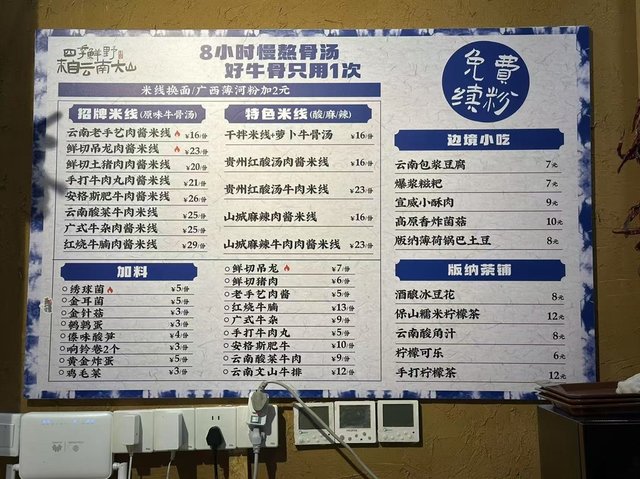 四季鲜野
来自云南大山
8小时慢熬骨汤
好牛骨只用1次
米线换面/广西薄河粉加2元
免費
续粉
招牌米线(原味牛骨汤)
云南老手艺肉酱米线 ¥16/份
鲜切吊龙肉酱米线 ¥23/份
鲜切土猪肉肉酱米线 ¥20/份
手打牛肉丸肉酱米线 ¥21/份
安格斯肥牛肉酱米线 ¥26/份
云南酸菜牛肉米线 ¥25/份
广式牛杂肉酱米线 ¥25/份
红烧牛腩肉酱米线 ¥29/份
特色米线(酸/麻/辣)
干拌米线+萝卜牛骨汤 ¥16/份
贵州红酸汤肉酱米线 ¥16/份
贵州红酸汤牛肉米线 ¥23/份
山城麻辣肉酱米线 ¥16/份
山城麻辣牛肉肉酱米线 ¥23/份
边境小吃
云南包浆豆腐 7元
爆浆糍粑 7元
宣威小酥肉 9元
高原香炸菌菇 10元
版纳薄荷锅巴土豆 8元
加料
绣球菌 ¥5/份
金耳菌 ¥5/份
金针菇 ¥3/份
鹌鹑蛋 ¥3/份
傣味酸笋 ¥4/份
响铃卷2个 ¥3/份
黄金炸蛋 ¥5/份
鸡毛菜 ¥3/份
鲜切吊龙 ¥7/份
鲜切猪肉 ¥6/份
老手艺肉酱 ¥5/份
红烧牛腩 ¥13/份
广式牛杂 ¥9/份
手打牛肉丸 ¥5/份
安格斯肥牛 ¥10/份
云南酸菜牛肉 ¥9/份
云南文山牛排 ¥12/份
版纳茶铺
酒酿冰豆花 8元
保山糯米柠檬茶 12元
云南酸角汁 8元
柠檬可乐 6元
手打柠檬茶 12元